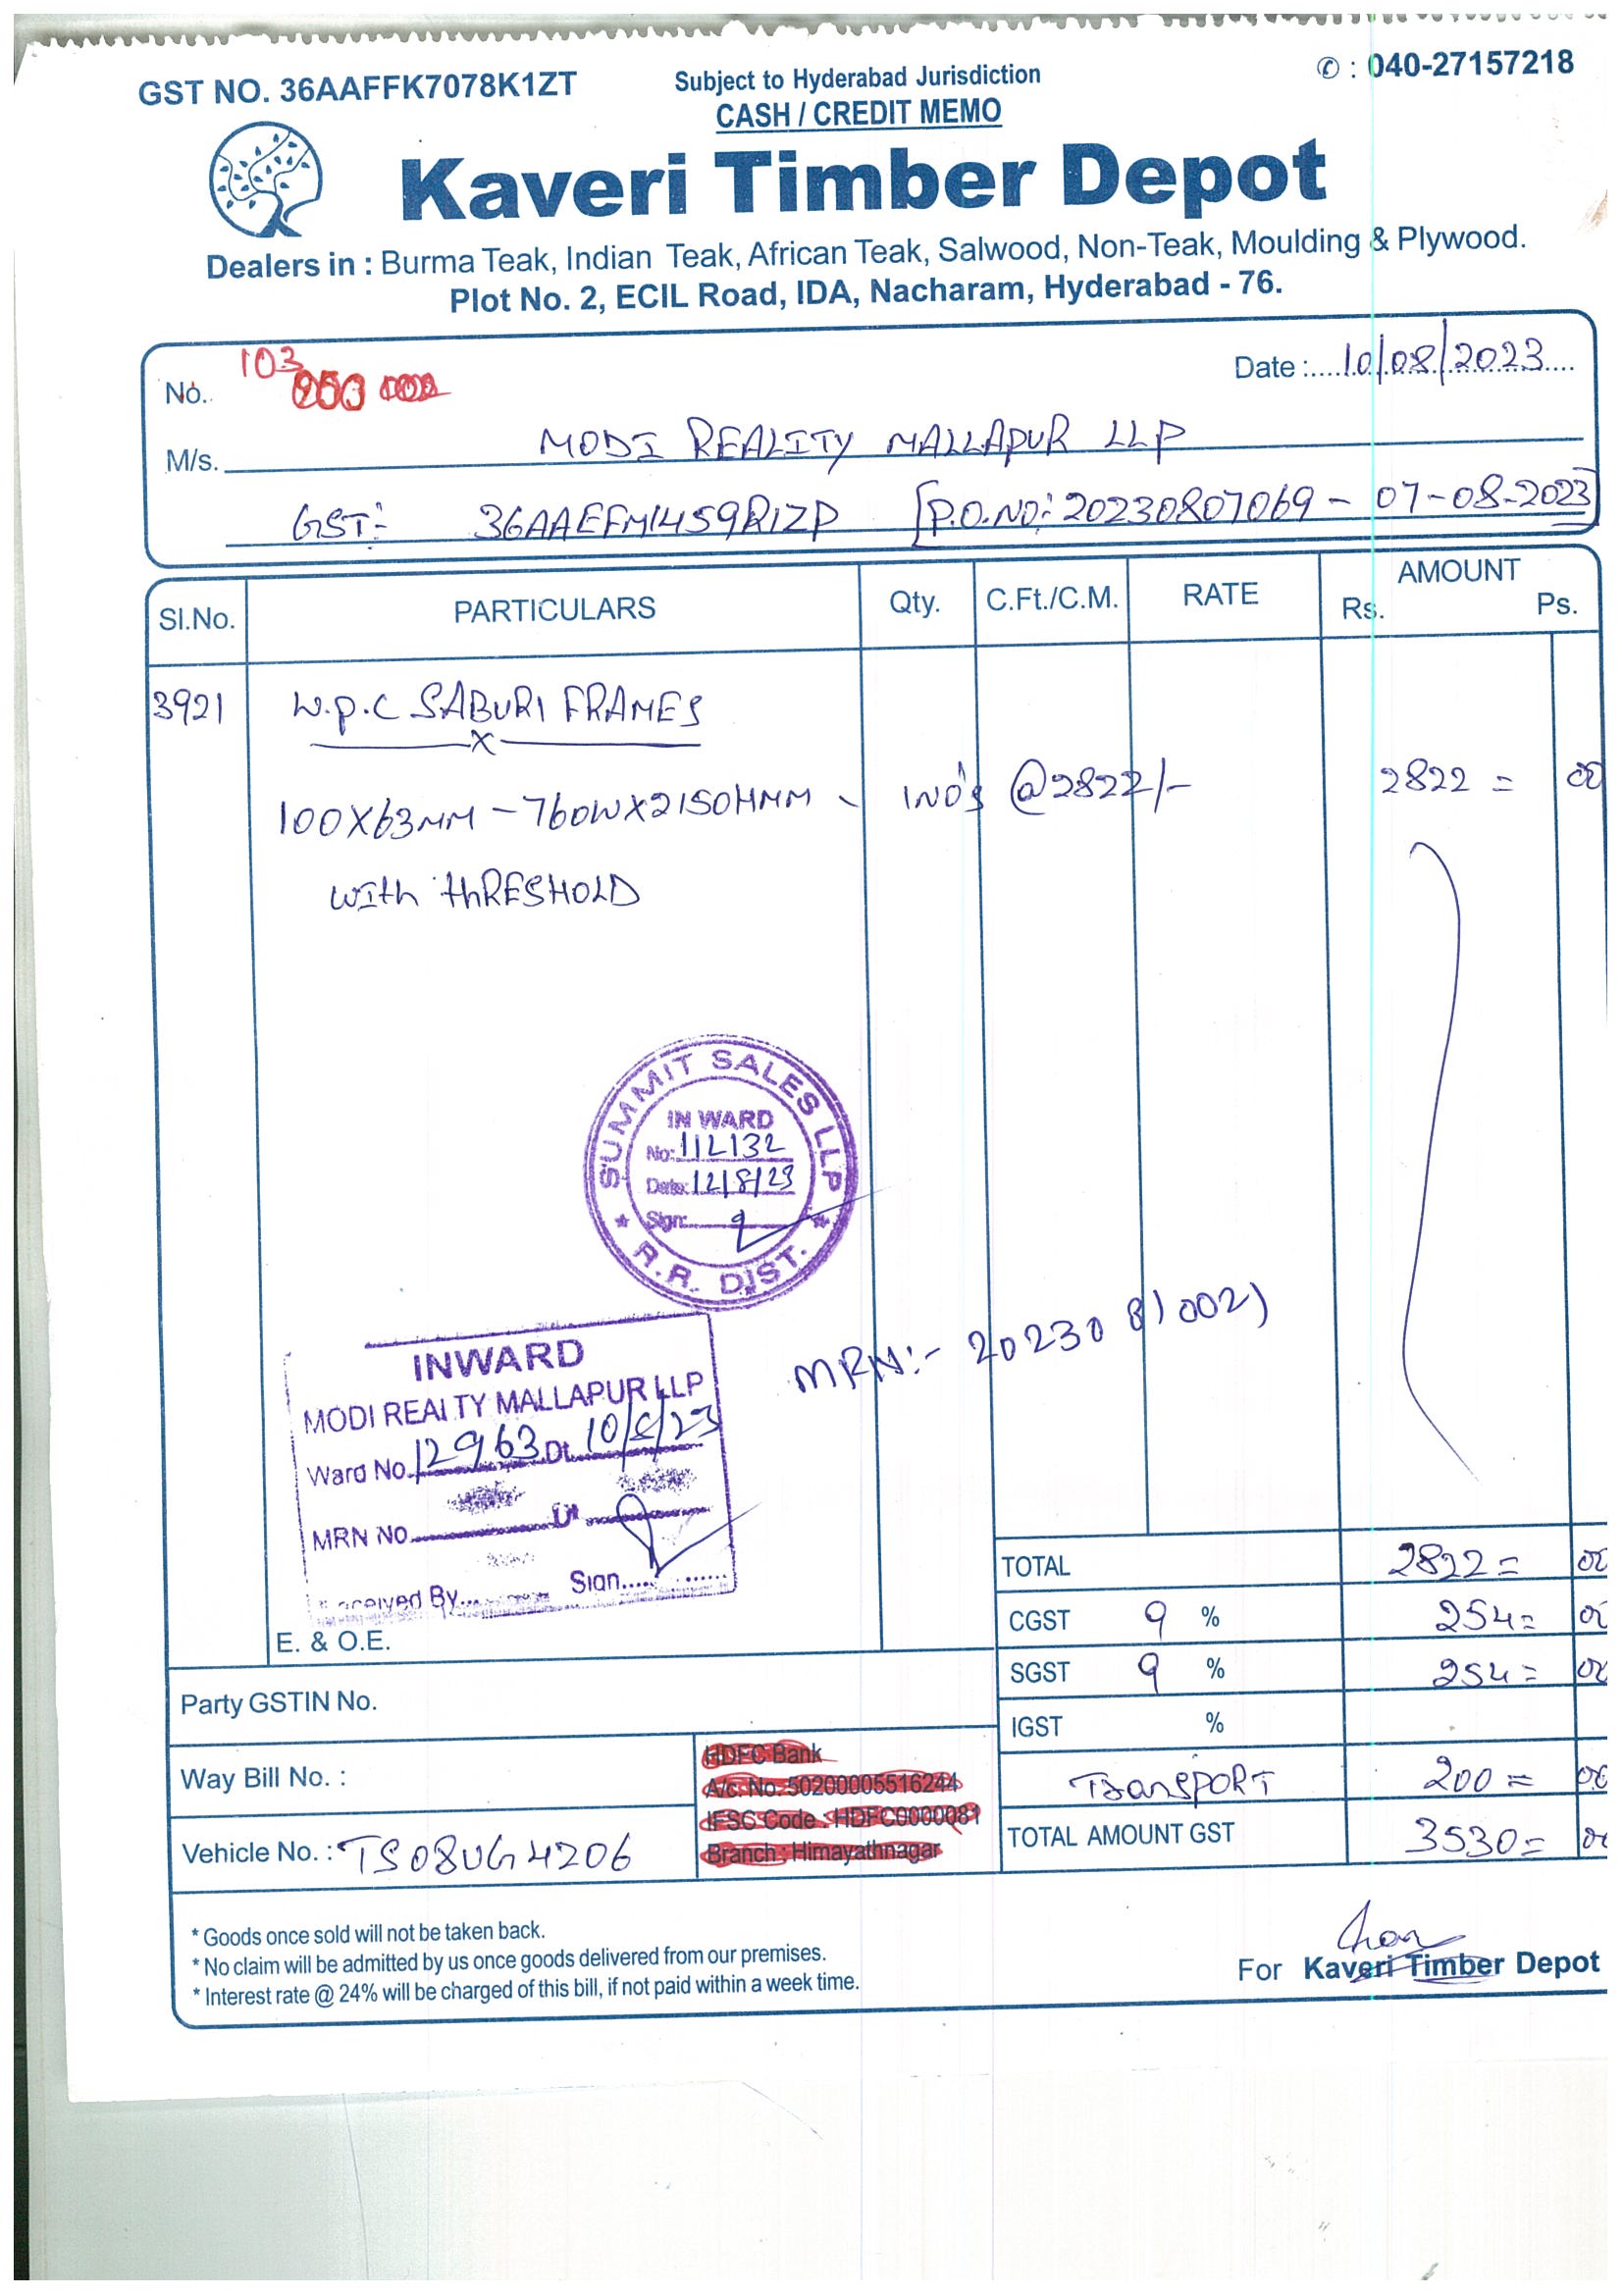 GST NO. 36AAFFK7078K1ZT
Subject to Hyderabad Jurisdiction
✆ : 040-27157218
CASH / CREDIT MEMO
Kaveri Timber Depot
Dealers in : Burma Teak, Indian Teak, African Teak, Salwood, Non-Teak, Moulding & Plywood.
Plot No. 2, ECIL Road, IDA, Nacharam, Hyderabad - 76.
No. 103
Date : 10/08/2023
M/s. MODI REALITY MALLAPUR LLP
GST:- 36AAEFM1459R1ZP [P.O.NO: 20230807069 - 07-08-2023]
Sl.No. PARTICULARS Qty. C.Ft./C.M. RATE AMOUNT Rs. Ps.
3921 W.P.C SABURI FRAMES
100X63MM - 760WX2150HMM - 1NO's @2822/- 2822 = 00
With thRESHOLD
SUMMIT SALES LLP
IN WARD
No: 112132
Date: 12/8/23
Sign:
R.R. DIST.
MRN:- 20230810021
INWARD
MODI REALTY MALLAPUR LLP
Ward No. 12963 Dt. 10/8/23
MRN No
Received By... Sign.....
TOTAL 2822 = 00
CGST 9 % 254 = 00
E. & O.E.
SGST 9 % 254 = 00
Party GSTIN No.
IGST %
HDFC Bank
Way Bill No. :
A/c. No. 50200005516244
TransPORT 200 = 00
IFSC Code : HDFC0000081
Vehicle No. : TS08UG4206
Branch : Himayathnagar
TOTAL AMOUNT GST 3530 = 00
* Goods once sold will not be taken back.
* No claim will be admitted by us once goods delivered from our premises.
* Interest rate @ 24% will be charged of this bill, if not paid within a week time.
For Kaveri Timber Depot